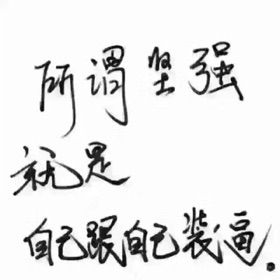 所谓坚强
就是
自己跟自己装逼.